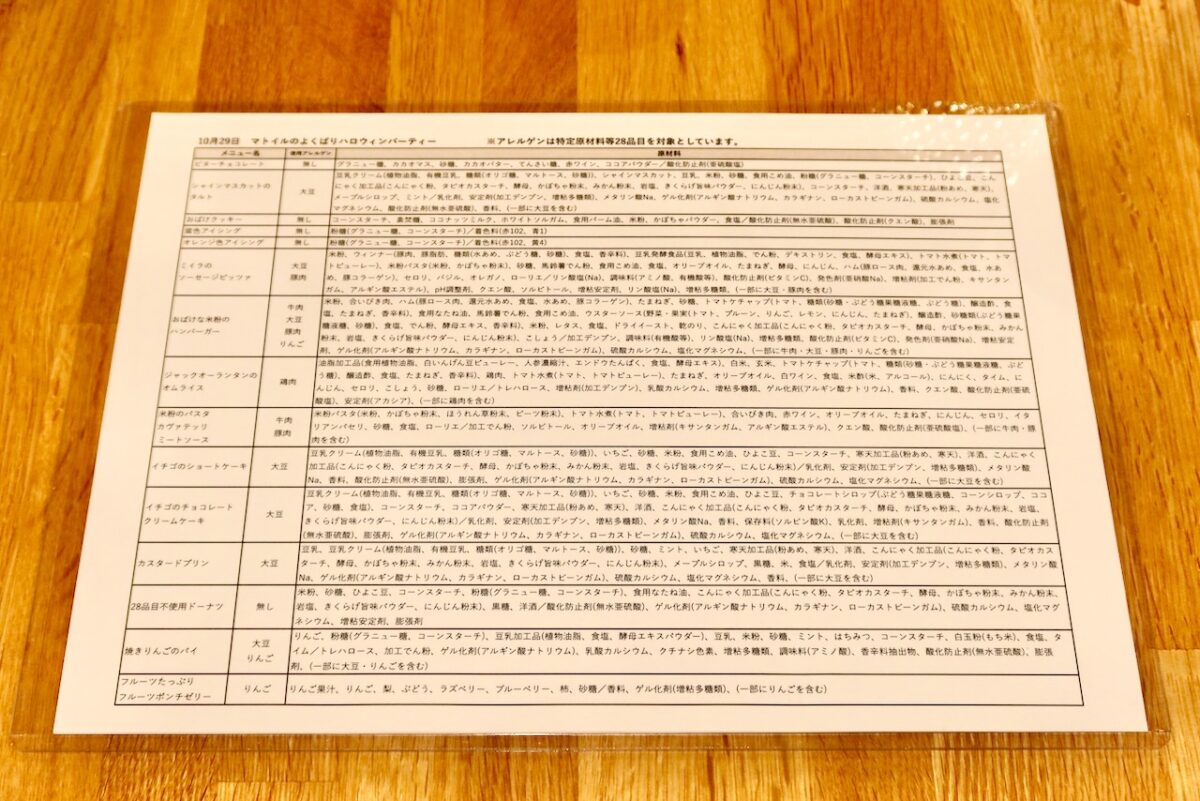 10月29日 マトイルのよくばりハロウィンパーティー ※アレルゲンは特定原材料等28品目を対象としています。
メニュー名 使用アレルゲン 原材料
ビターチョコレート 無し グラニュー糖、カカオマス、砂糖、カカオバター、てんさい糖、赤ワイン、ココアパウダー／酸化防止剤(亜硫酸塩)
シャインマスカットの
タルト
大豆
豆乳クリーム(植物油脂、有機豆乳、糖類(オリゴ糖、マルトース、砂糖))、シャインマスカット、豆乳、米粉、砂糖、食用こめ油、粉糖(グラニュー糖、コーンスターチ)、ひよこ豆、こん
にゃく加工品(こんにゃく粉、タピオカスターチ、酵母、かぼちゃ粉末、みかん粉末、岩塩、きくらげ旨味パウダー、にんじん粉末)、コーンスターチ、洋酒、寒天加工品(粉あめ、寒天)、
メープルシロップ、ミント／乳化剤、安定剤(加工デンプン、増粘多糖類)、メタリン酸Na、ゲル化剤(アルギン酸ナトリウム、カラギナン、ローカストビーンガム)、硫酸カルシウム、塩化
マグネシウム、酸化防止剤(無水亜硫酸)、香料、(一部に大豆を含む)
おばけクッキー 無し コーンスターチ、素焚糖、ココナッツミルク、ホワイトソルガム、食用パーム油、米粉、かぼちゃパウダー、食塩／酸化防止剤(無水亜硫酸)、酸化防止剤(クエン酸)、膨張剤
紫色アイシング 無し 粉糖(グラニュー糖、コーンスターチ)／着色料(赤102、青1)
オレンジ色アイシング 無し 粉糖(グラニュー糖、コーンスターチ)／着色料(赤102、黄4)
ミイラの
ソーセージピッツァ
大豆
豚肉
米粉、ウィンナー(豚肉、豚脂肪、糖類(水あめ、ぶどう糖、砂糖)、食塩、香辛料)、豆乳発酵食品(豆乳、植物油脂、でん粉、デキストリン、食塩、酵母エキス)、トマト水煮(トマト、トマ
トピューレー)、米粉パスタ(米粉、かぼちゃ粉末)、砂糖、馬鈴薯でん粉、食用こめ油、食塩、オリーブオイル、たまねぎ、酵母、にんじん、ハム(豚ロース肉、還元水あめ、食塩、水あ
め、豚コラーゲン)、セロリ、バジル、オレガノ、ローリエ／リン酸塩(Na)、調味料(アミノ酸、有機酸等)、酸化防止剤(ビタミンC)、発色剤(亜硝酸Na)、増粘剤(加工でん粉、キサンタン
ガム、アルギン酸エステル)、pH調整剤、クエン酸、ソルビトール、増粘安定剤、リン酸塩(Na)、増粘多糖類、(一部に大豆・豚肉を含む)
おばけな米粉の
ハンバーガー
牛肉
大豆
豚肉
りんご
米粉、合いびき肉、ハム(豚ロース肉、還元水あめ、食塩、水あめ、豚コラーゲン)、たまねぎ、砂糖、トマトケチャップ(トマト、糖類(砂糖・ぶどう糖果糖液糖、ぶどう糖)、醸造酢、食
塩、たまねぎ、香辛料)、食用なたね油、馬鈴薯でん粉、食用こめ油、ウスターソース(野菜・果実(トマト、プルーン、りんご、レモン、にんじん、たまねぎ)、醸造酢、砂糖類(ぶどう糖果
糖液糖、砂糖)、食塩、でん粉、酵母エキス、香辛料)、米粉、レタス、食塩、ドライイースト、乾のり、こんにゃく加工品(こんにゃく粉、タピオカスターチ、酵母、かぼちゃ粉末、みかん
粉末、岩塩、きくらげ旨味パウダー、にんじん粉末)、こしょう／加工デンプン、調味料(有機酸等)、リン酸塩(Na)、増粘多糖類、酸化防止剤(ビタミンC)、発色剤(亜硝酸Na)、増粘安定
剤、ゲル化剤(アルギン酸ナトリウム、カラギナン、ローカストビーンガム)、硫酸カルシウム、塩化マグネシウム、(一部に牛肉・大豆・豚肉・りんごを含む)
ジャックオーランタンの
オムライス
鶏肉
油脂加工品(食用植物油脂、白いんげん豆ピューレー、人参濃縮汁、エンドウたんぱく、食塩、酵母エキス)、白米、玄米、トマトケチャップ(トマト、糖類(砂糖・ぶどう糖果糖液糖、ぶど
う糖)、醸造酢、食塩、たまねぎ、香辛料)、鶏肉、トマト水煮(トマト、トマトピューレー)、たまねぎ、オリーブオイル、白ワイン、食塩、米酢(米、アルコール)、にんにく、タイム、にん
じん、セロリ、こしょう、砂糖、ローリエ／トレハロース、増粘剤(加工デンプン)、乳酸カルシウム、増粘多糖類、ゲル化剤(アルギン酸ナトリウム)、香料、クエン酸、酸化防止剤(亜硫
酸塩)、安定剤(アカシア)、(一部に鶏肉を含む)
米粉のパスタ
カヴァテッリ
ミートソース
牛肉
豚肉
米粉パスタ(米粉、かぼちゃ粉末、ほうれん草粉末、ビーツ粉末)、トマト水煮(トマト、トマトピューレー)、合いびき肉、赤ワイン、オリーブオイル、たまねぎ、にんじん、セロリ、イタ
リアンパセリ、砂糖、食塩、ローリエ／加工でん粉、ソルビトール、オリーブオイル、増粘剤(キサンタンガム、アルギン酸エステル)、クエン酸、酸化防止剤(亜硫酸塩)、(一部に牛肉・豚
肉を含む)
イチゴのショートケーキ
大豆
豆乳クリーム(植物油脂、有機豆乳、糖類(オリゴ糖、マルトース、砂糖))、いちご、砂糖、米粉、食用こめ油、ひよこ豆、コーンスターチ、寒天加工品(粉あめ、寒天)、洋酒、こんにゃく
加工品(こんにゃく粉、タピオカスターチ、酵母、かぼちゃ粉末、みかん粉末、岩塩、きくらげ旨味パウダー、にんじん粉末)／乳化剤、安定剤(加工デンプン、増粘多糖類)、メタリン酸
Na、香料、酸化防止剤(無水亜硫酸)、膨張剤、ゲル化剤(アルギン酸ナトリウム、カラギナン、ローカストビーンガム)、硫酸カルシウム、塩化マグネシウム、(一部に大豆を含む)
イチゴのチョコレート
クリームケーキ
大豆
豆乳クリーム(植物油脂、有機豆乳、糖類(オリゴ糖、マルトース、砂糖))、いちご、砂糖、米粉、食用こめ油、ひよこ豆、チョコレートシロップ(ぶどう糖果糖液糖、コーンシロップ、ココ
ア、砂糖、食塩)、コーンスターチ、ココアパウダー、寒天加工品(粉あめ、寒天)、洋酒、こんにゃく加工品(こんにゃく粉、タピオカスターチ、酵母、かぼちゃ粉末、みかん粉末、岩塩、
きくらげ旨味パウダー、にんじん粉末)／乳化剤、安定剤(加工デンプン、増粘多糖類)、メタリン酸Na、香料、保存料(ソルビン酸K)、乳化剤、増粘剤(キサンタンガム)、香料、酸化防止剤
(無水亜硫酸)、膨張剤、ゲル化剤(アルギン酸ナトリウム、カラギナン、ローカストビーンガム)、硫酸カルシウム、塩化マグネシウム、(一部に大豆を含む)
カスタードプリン
大豆
豆乳、豆乳クリーム(植物油脂、有機豆乳、糖類(オリゴ糖、マルトース、砂糖))、砂糖、ミント、いちご、寒天加工品(粉あめ、寒天)、洋酒、こんにゃく加工品(こんにゃく粉、タピオカス
ターチ、酵母、かぼちゃ粉末、みかん粉末、岩塩、きくらげ旨味パウダー、にんじん粉末)、メープルシロップ、黒糖、米、食塩／乳化剤、安定剤(加工デンプン、増粘多糖類)、メタリン酸
Na、ゲル化剤(アルギン酸ナトリウム、カラギナン、ローカストビーンガム)、硫酸カルシウム、塩化マグネシウム、香料、(一部に大豆を含む)
28品目不使用ドーナツ
無し
米粉、砂糖、ひよこ豆、コーンスターチ、粉糖(グラニュー糖、コーンスターチ)、食用なたね油、こんにゃく加工品(こんにゃく粉、タピオカスターチ、酵母、かぼちゃ粉末、みかん粉末、
岩塩、きくらげ旨味パウダー、にんじん粉末)、黒糖、洋酒／酸化防止剤(無水亜硫酸)、ゲル化剤(アルギン酸ナトリウム、カラギナン、ローカストビーンガム)、硫酸カルシウム、塩化マグ
ネシウム、増粘安定剤、膨張剤
焼きりんごのパイ
大豆
りんご
りんご、粉糖(グラニュー糖、コーンスターチ)、豆乳加工品(植物油脂、食塩、酵母エキスパウダー)、豆乳、米粉、砂糖、ミント、はちみつ、コーンスターチ、白玉粉(もち米)、食塩、タ
イム／トレハロース、加工でん粉、ゲル化剤(アルギン酸ナトリウム)、乳酸カルシウム、クチナシ色素、増粘多糖類、調味料(アミノ酸)、香辛料抽出物、酸化防止剤(無水亜硫酸)、膨張
剤、(一部に大豆・りんごを含む)
フルーツたっぷり
フルーツポンチゼリー
りんご
りんご果汁、りんご、梨、ぶどう、ラズベリー、ブルーベリー、柿、砂糖／香料、ゲル化剤(増粘多糖類)、(一部にりんごを含む)